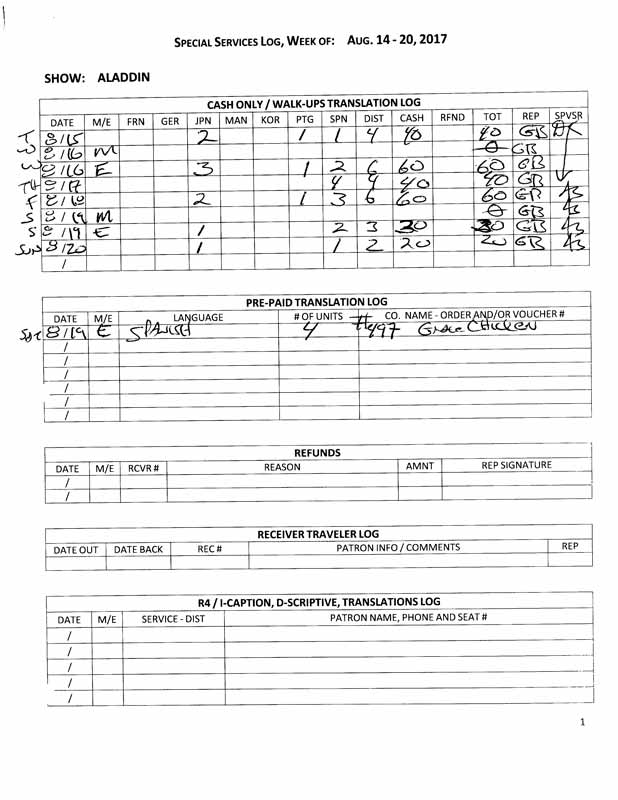 SPECIAL SERVICES LOG, WEEK OF: AUG. 14 - 20, 2017
SHOW: ALADDIN
CASH ONLY / WALK-UPS TRANSLATION LOG
DATE M/E FRN GER JPN MAN KOR PTG SPN DIST CASH RFND TOT REP SPVSR
T 8/15 2 1 1 4 40 40 GB DK
W 8/16 M 0 GB
W 8/16 E 3 1 2 6 60 60 GB
TH 8/17 4 4 40 40 GB
F 8/18 2 1 3 6 60 60 GB
S 8/19 M 0 GB
S 8/19 E 1 2 3 30 30 GB
SUN 8/20 1 1 2 20 20 GB
/
PRE-PAID TRANSLATION LOG
DATE M/E LANGUAGE # OF UNITS CO. NAME - ORDER AND/OR VOUCHER #
8/19 E SPANISH 4 #497
/
/
/
/
/
/
REFUNDS
DATE M/E RCVR # REASON AMNT REP SIGNATURE
/
/
RECEIVER TRAVELER LOG
DATE OUT DATE BACK REC # PATRON INFO / COMMENTS REP
R4 / I-CAPTION, D-SCRIPTIVE, TRANSLATIONS LOG
DATE M/E SERVICE - DIST PATRON NAME, PHONE AND SEAT #
/
/
/
/
/
1